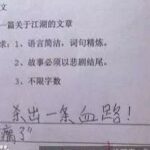 文
一篇关于江湖的文章
求：1、语言简洁，词句精炼。
2、故事必须以悲剧结尾。
3、不限字数
杀出一条血路！
瘸了